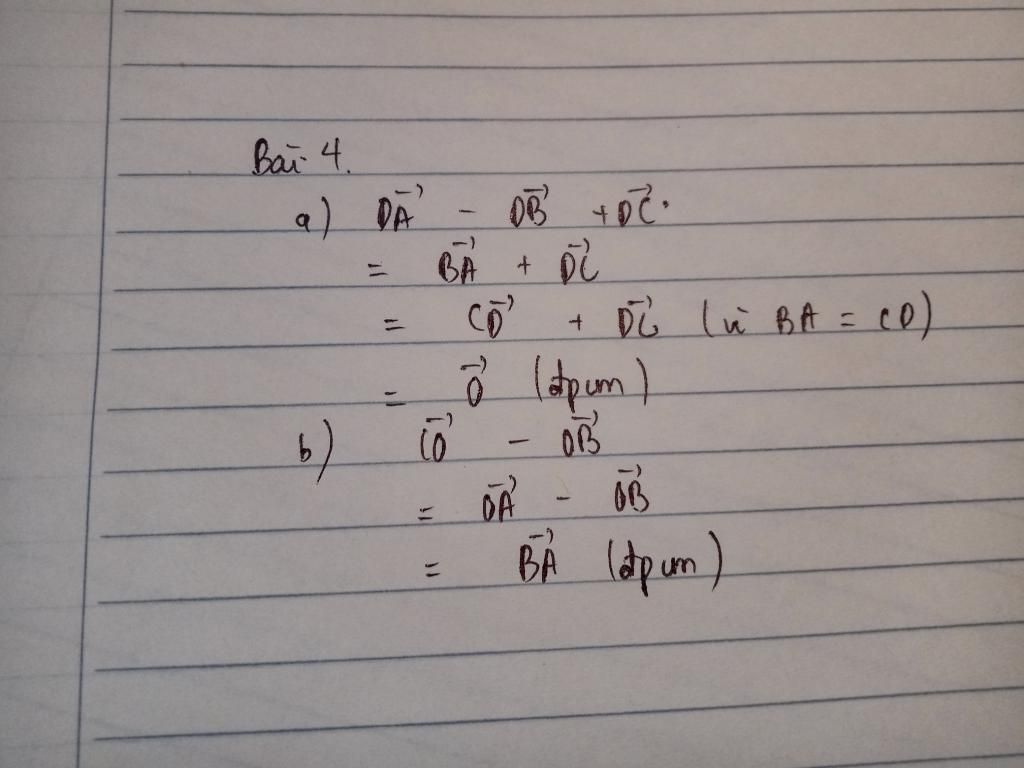 Bài 4.
a) DA⃗ - DB⃗ + DC⃗.
= BA⃗ + DC⃗
= CD⃗ + DC⃗ (vì BA = CD)
= 0⃗ (đpcm)
b) CO⃗ - OB⃗
= OA⃗ - OB⃗
= BA⃗ (đpcm)